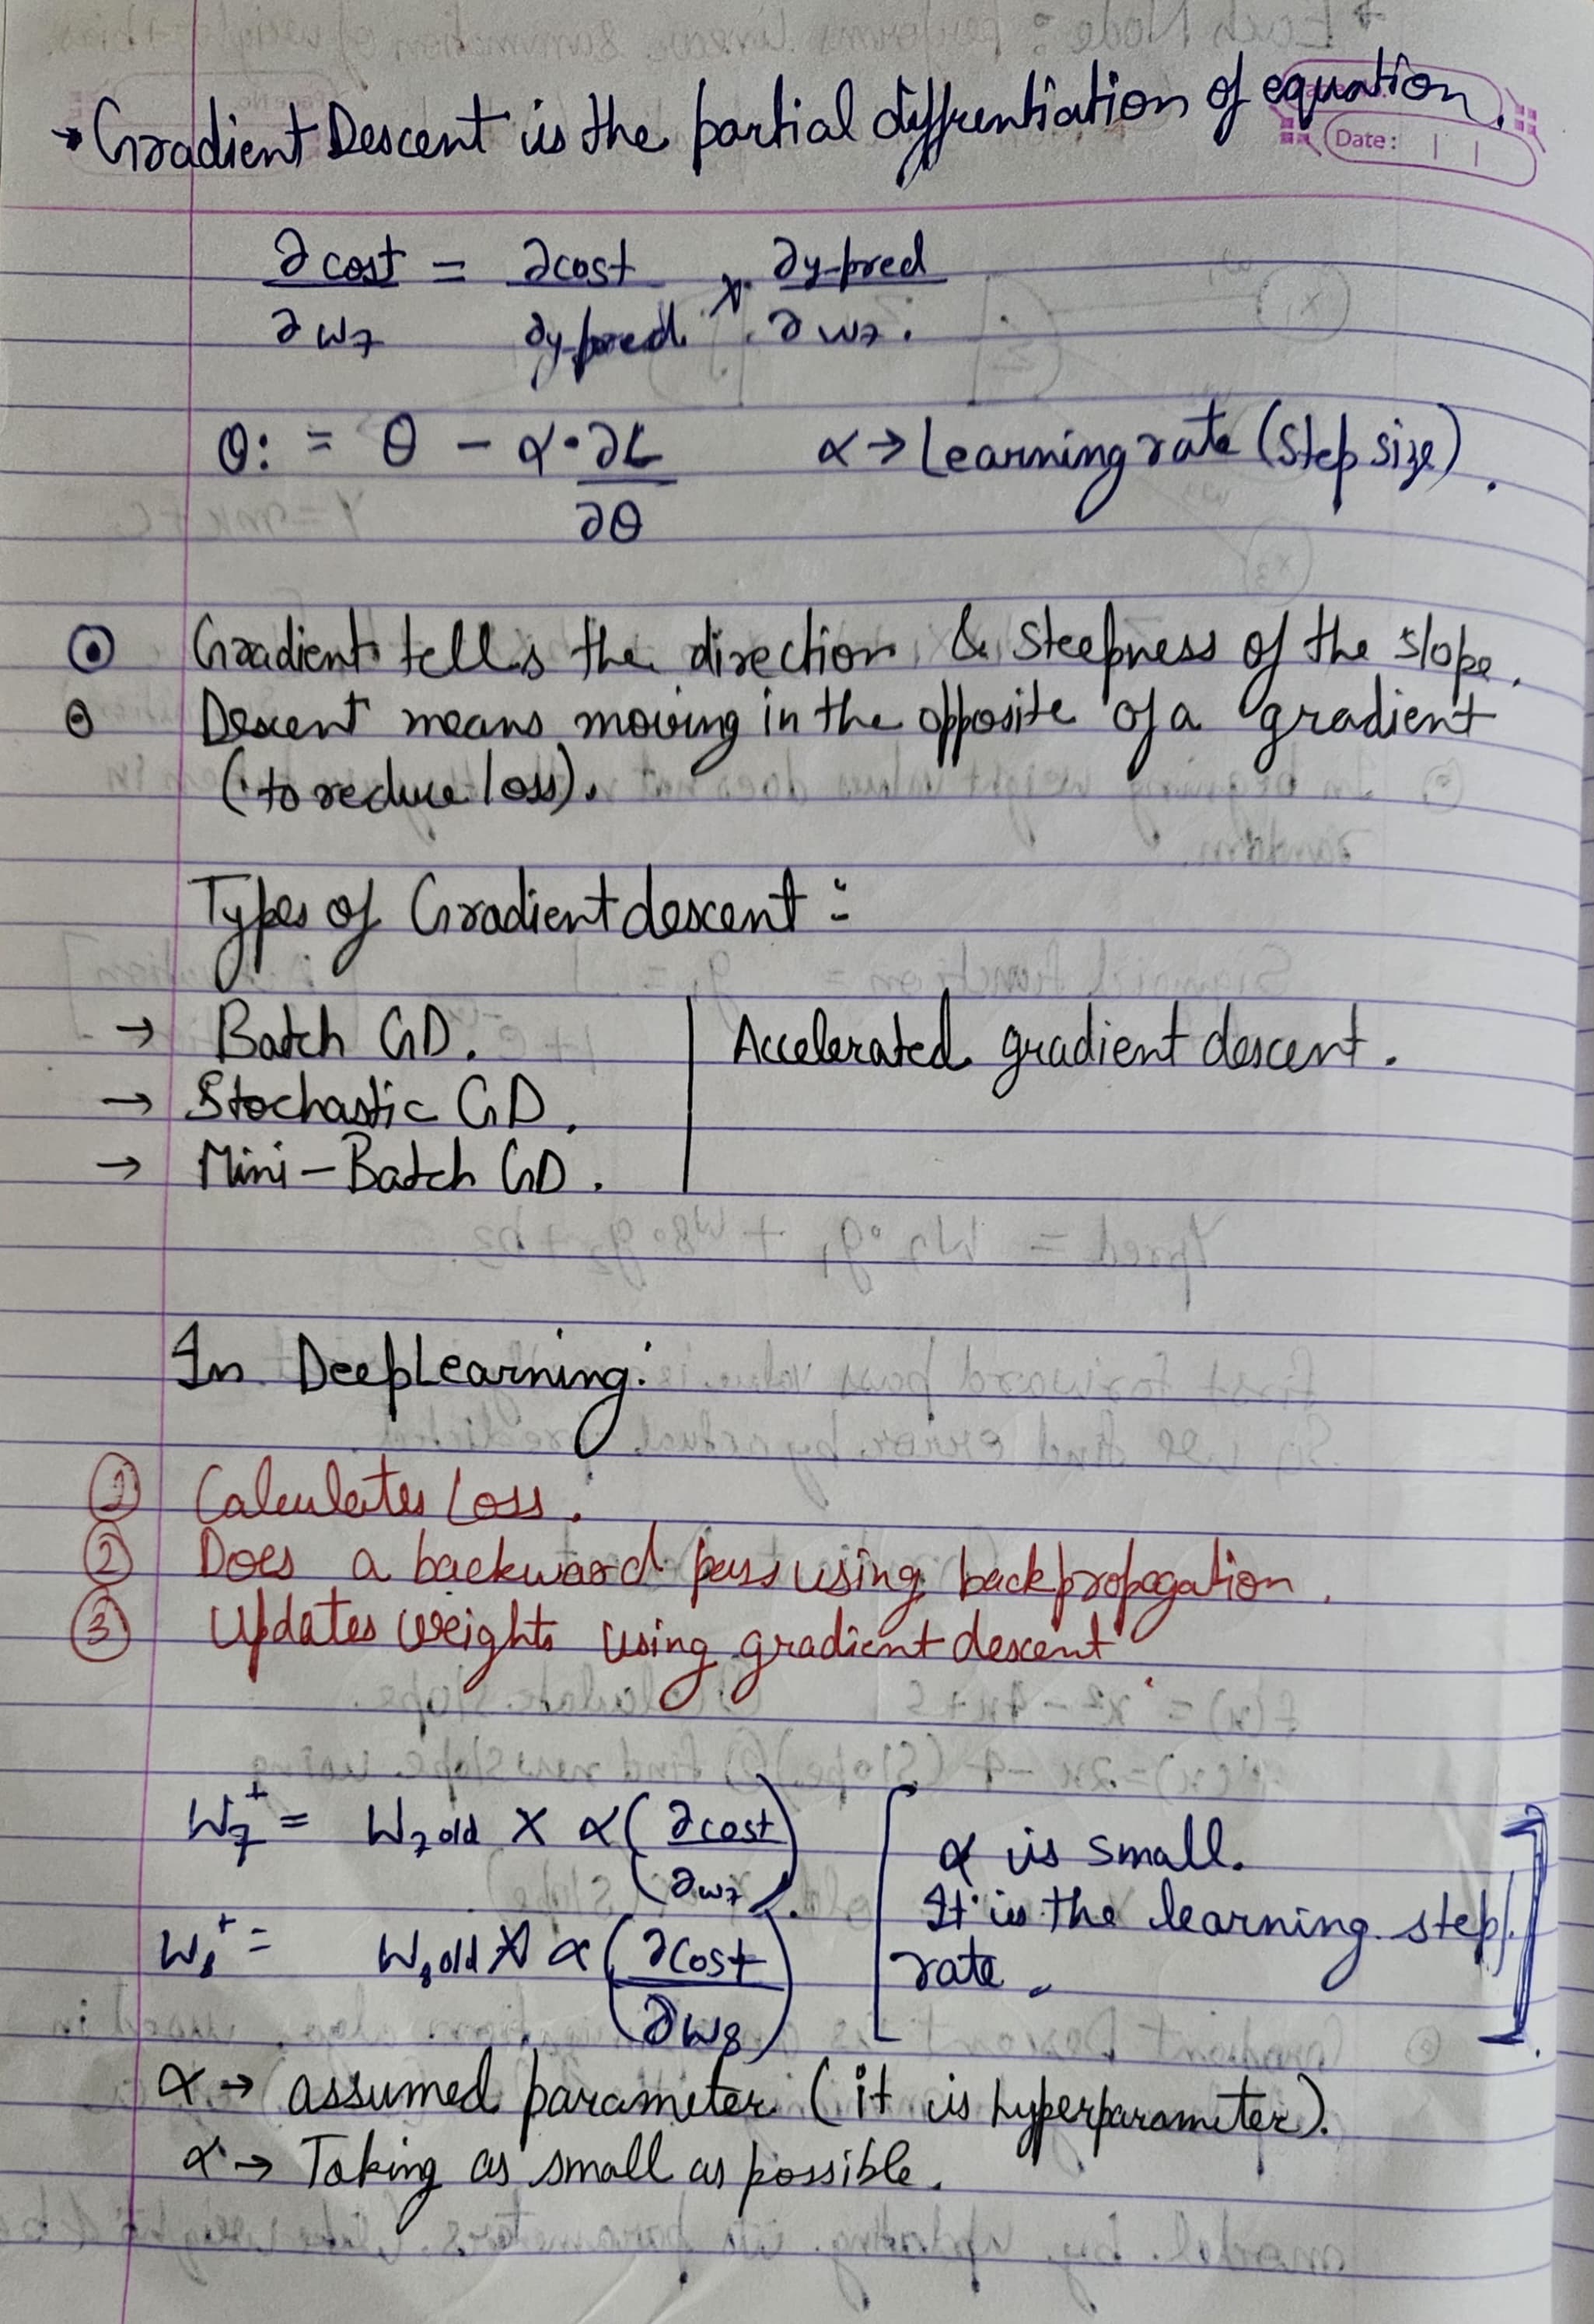 → Gradient Descent is the partial diffrentiation of equation.
Date:
∂cost/∂w7 = ∂cost/∂y-pred × ∂y-pred/∂w7.
θ: = θ - α·∂L/∂θ   α → Learning rate (Step size).
⊙ Gradient tells the direction & steepness of the slope.
⊙ Descent means moving in the opposite of a gradient
(to reduce loss).
Types of Gradient descent :-
→ Batch GD. | Accelerated gradient descent.
→ Stochastic GD.
→ Mini-Batch GD.
In DeepLearning:
① Calculates Loss.
② Does a backward pass using backpropogation.
③ Updates weights using gradient descent.
W7⁺ = W7old × α(∂cost/∂w7).
W8⁺ = W8old × α(∂cost/∂w8)
[α is small.
It is the learning step
rate.]
α → assumed parameter (it is hyperparameter).
α → Taking as small as possible.